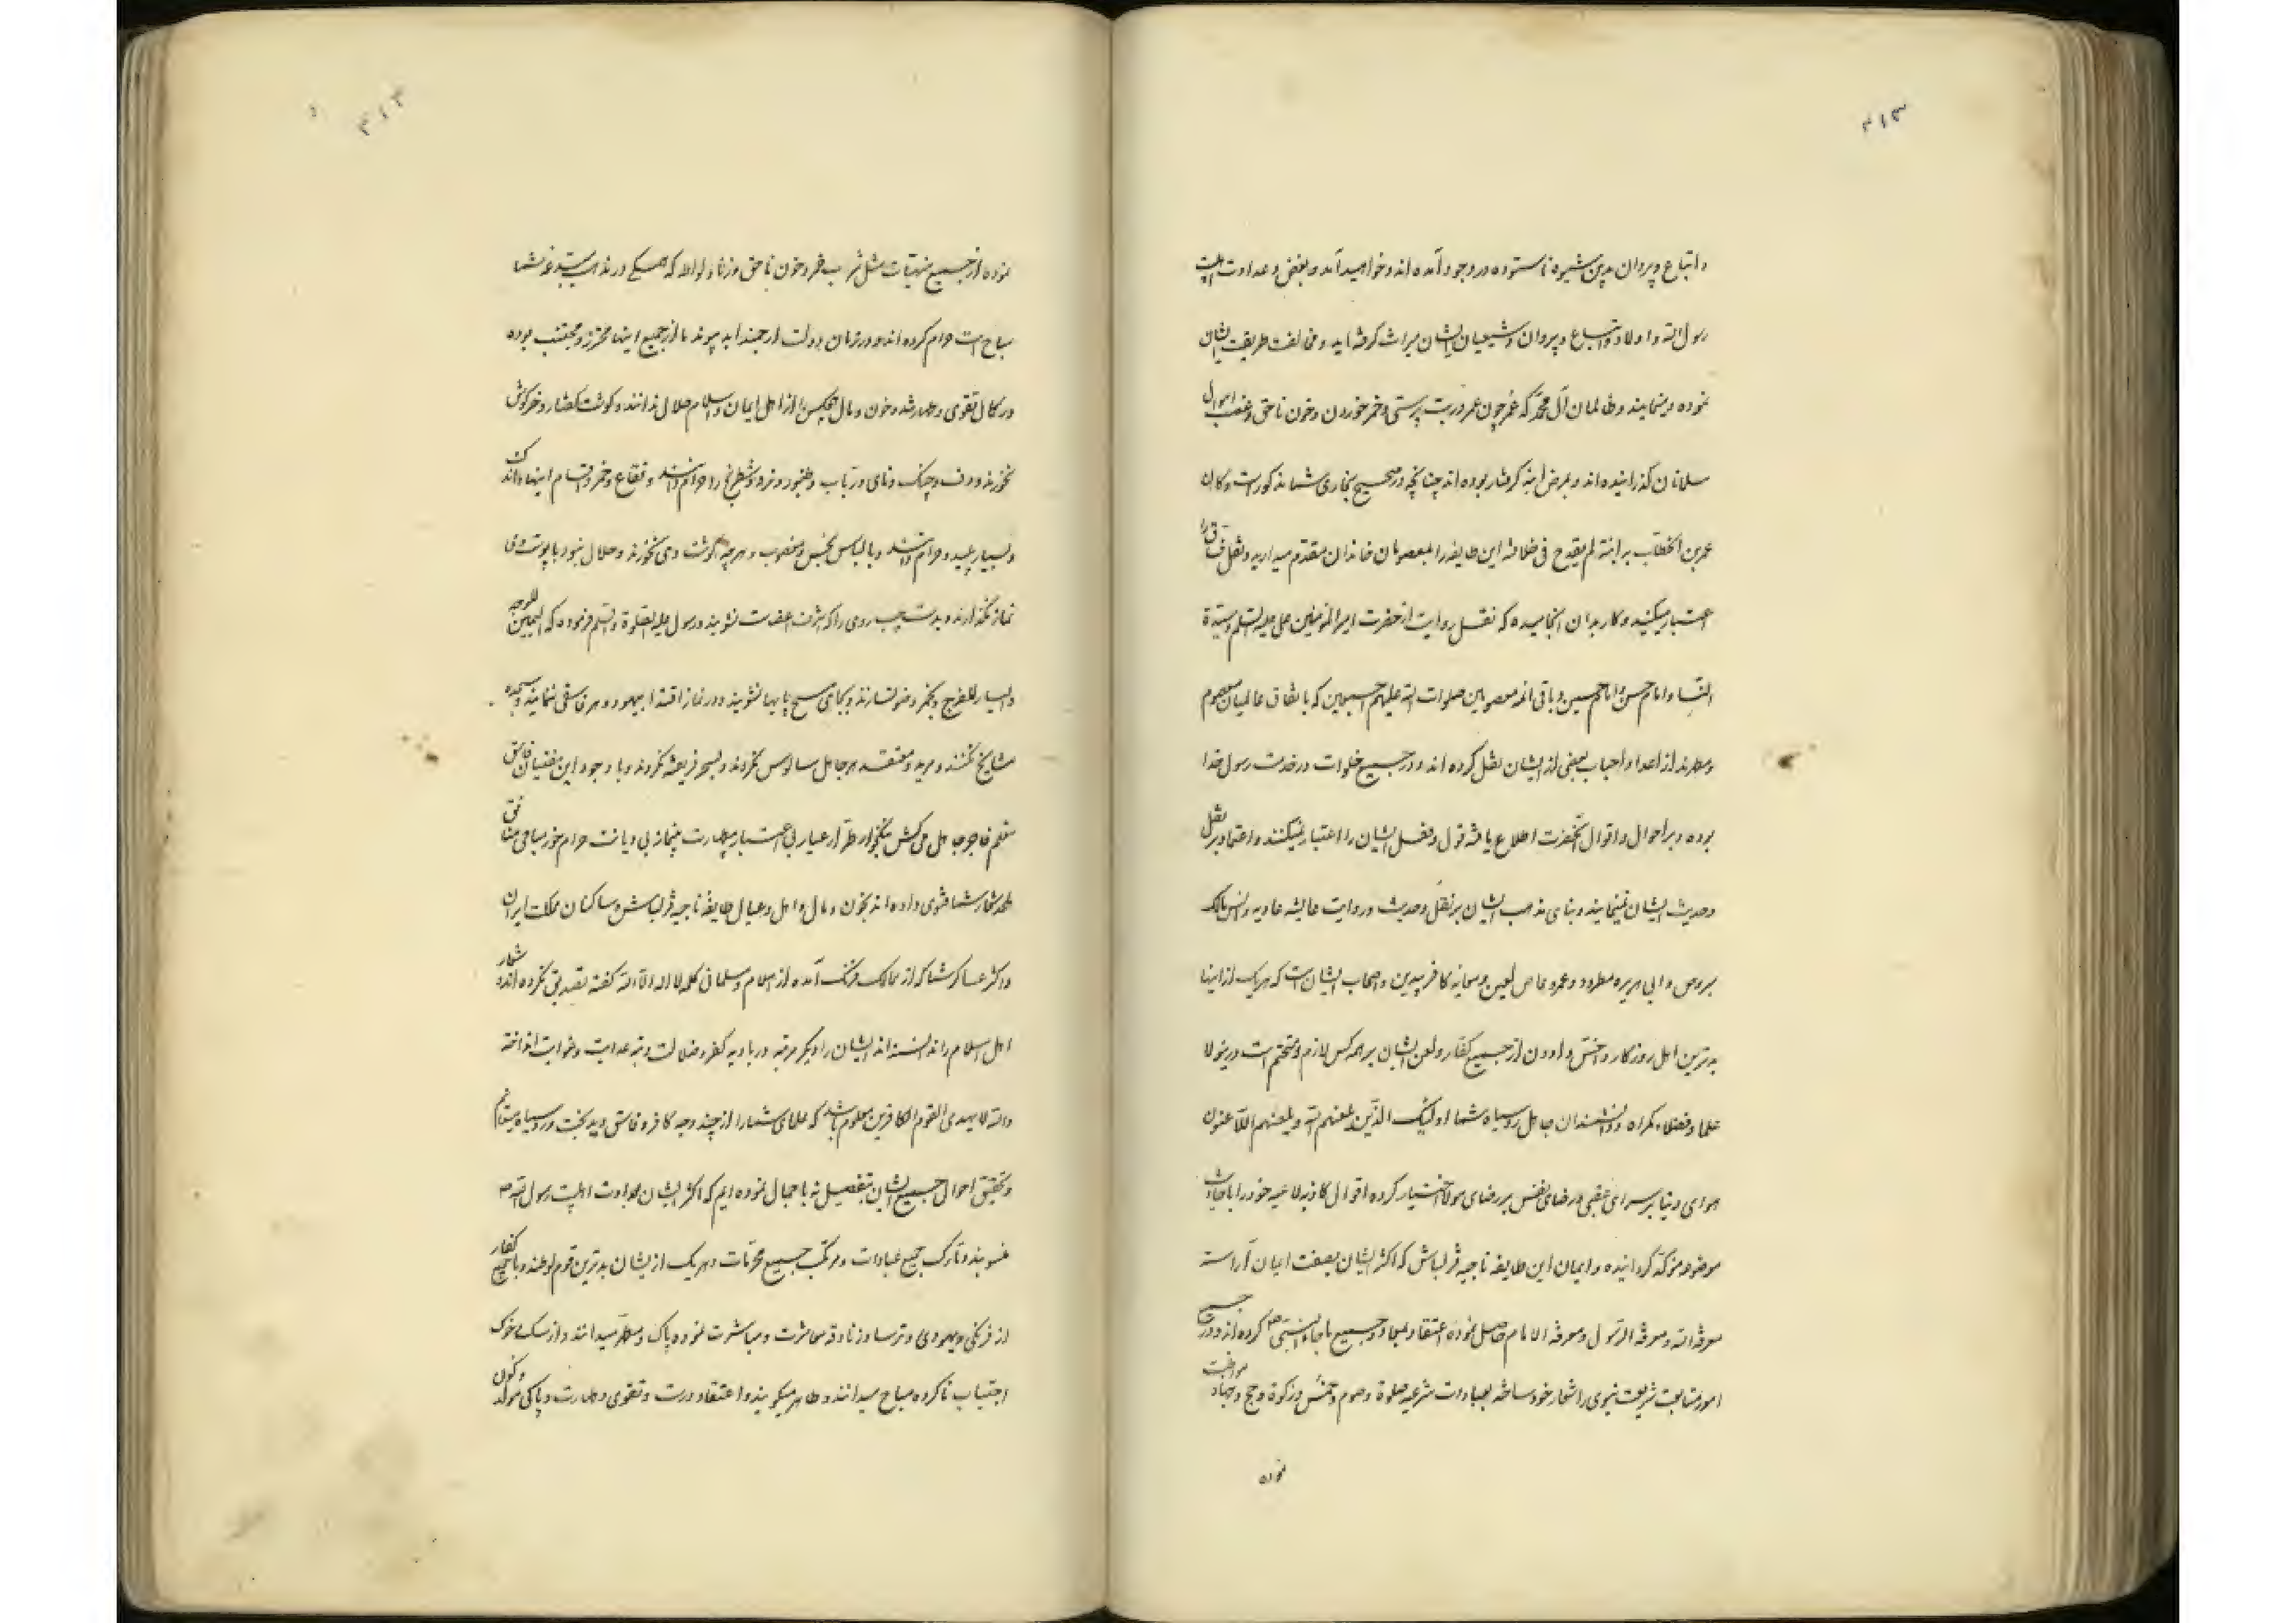 ۳۱۳
و اتباع و پیروان بدین شیوه ناستوده در وجود آمده اند و خواهید آمد و بغض و عداوت اهلبیت
رسول الله و اولاد و اتباع و پیروان و شیعیان ایشان میراث گرفته اید و مخالفت طریقت ایشان
نموده و مینمایند و ظالمان آل محمد که عمر چون عمر در بت پرستی و خمر خوردن و خون ناحق و غصب اموال
مسلمانان گذرانیده اند و بمرض ابنه گرفتار بوده اند چنانچه در صحیح بخاری شما مذکور است و کان
عمر بن الخطاب به ابنة لم یقدح فی خلافته این طایفه را بمعصومان خاندان مقدم میدارید و نقل
اعتبار میکنید و کار بدان انجامیده که نقل روایت از حضرت امیرالمؤمنین علی علیه السلم و سیدة
النسا و امام حسن و امام حسین و باقی ائمه معصومین صلوات الله علیهم اجمعین که باتفاق عالمیان معصوم
و مطهرند از اعدا و احباب بعضی از ایشان نقل کرده اند و در جمیع خلوات در خدمت رسول خدا
بوده و بر احوال و اقوال آنحضرت اطلاع یافته قول و فعل ایشان را اعتبار نمیکنند و اعتماد بر نقل
و حدیث ایشان نمینمایند و بنای مذهب ایشان بر نقل و حدیث و روایت عایشه عادیه و انس مالک
مبروص و ابی هریره مطرود و عمرو عاص لعین و معویه کافر بیدین و اصحاب ایشان است که هر یک از اینها
بدترین اهل روزگار و اخس و ادون از جمیع کفار و لعن ایشان بر همه کس لازم و متحتم است و درینولا
علما و فضلاء گمراه و دانشمندان جاهل رو سیاه شما اولئک الذین یلعنهم الله و یلعنهم اللاعنون
هوای دنیا بر سرای عقبی و رضای نفس بر رضای مولا اختیار کرده اقوال کاذبه لاعیه خود را با
موضوع مؤکد گردانیده و ایمان این طایفه ناجیه قزلباش که اکثر ایشان بصفت ایمان آراسته
معرفة الله و معرفة الرسول و معرفة الامام حاصل نموده اعتقاد بمعاد و جمیع ما جاء به النبی ص کرده اند و در جمیع
امور متابعت شریعت نبوی را شعار خود ساخته بعبادات شرعیه صلوة و صوم و خمس و زکوة و حج و جهاد مواظبت
نموده
۳۱۴
نموده از جمیع منهیات مثل شرب خمر و خون ناحق و زنا و لواطه که همگی در مذهب مبتدعه شما
مباح است حرام کرده اند و در زمان دولت ارجمند ابد پیوند ما از جمیع اینها محترز و مجتنب بوده
در کمال تقوی و طهارتند و خون و مال هیچکس را از اهل ایمان و اسلام حلال ندانند و گوشت کفتار و خرگوش
نخورند و دف و چنگ و نای و رباب و طنبور و نرد و شطرنج را حرام دانند و فقاع و خمر و اقسام اینها را
و بسیار پلید و حرام دانند و با لباس نجس و مغصوب و هر چه گوشت وی نخورند و حلال نبود با پوست وی
نماز نگذارند و بدست چپ روی را که اشرف اعضاست نشویند و رسول علیه الصلوة و السلم فرموده که الیمین للوجه
و الیسار للفرج و بخمر وضو نسازند و بجای مسح پایها نشویند و در نماز اقتدا بیهود و هر فاسقی ننمایند و سجده
مشایخ نکنند و مرید و معتقد هر جاهل سالوس نگردند و بسحر فریفته نگردند و با وجود این مفتیان فاسق
متعلم فاجر جاهل می کش بنگ خوار طرار عیار بی اعتبار بیطهارت بینماز بی دیانت حرام خور مباحی منافق
ملحد شعار شما فتوی داده اند بخون و مال و اهل و عیال طایفه ناجیه قزلباش و ساکنان مملکت ایران
و اکثر عساکر شما که از ممالک فرنگ آمده از اسلام و مسلمانی کلمه لا اله الا الله گفته تصدیق نکرده اند شعار
اهل اسلام را ندانسته اند ایشان را دیگر مرتبه در بادیه کفر و ضلالت و تیه عداوت و غوایت انداخته
والله لا یهدی القوم الکافرین معلوم باشد که علمای شما را از چند وجه کافر و فاسق و بدبخت و رو سیاه میدانیم
و تحقیق احوال جمیع ایشان بتفصیل نه باجمال نموده ایم که اکثر ایشان بعداوت اهلبیت رسول الله ص
منسوبند و تارک جمیع عبادات و مرتکب جمیع محرمات و هر یک از ایشان بدترین قوم لوطند و با جمیع کفار
از فرنگی و یهودی و ترسا و زنادقه معاشرت و مباشرت نموده پاک و مطهر میدانند و از سگ و خوک
اجتناب ناکرده مباح میدانند و طاهر میگویند و اعتقاد درست و تقوی و طهارت و پاکی مولد